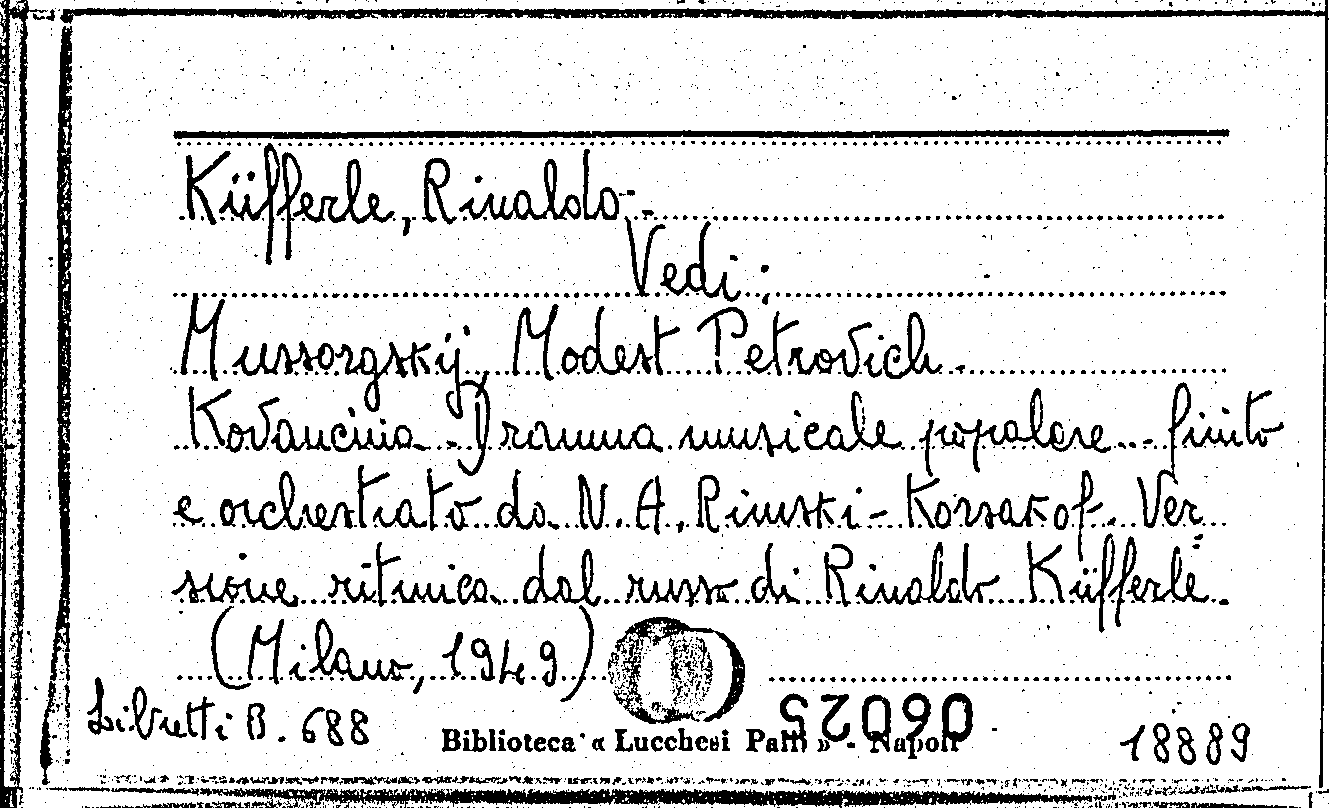 Küfferle, Rinaldo.-
Vedi:
Mussorgskij, Modest Petrovich.
Kovancina. Dramma musicale popolare.- finito
e orchestrato da N. A. Rimski-Korsakof. Ver=
sione ritmica dal russo di Rinaldo Küfferle.
(Milano, 1949)
Libretti B. 688
06025
Biblioteca « Lucchesi Palli » - Napoli
18889